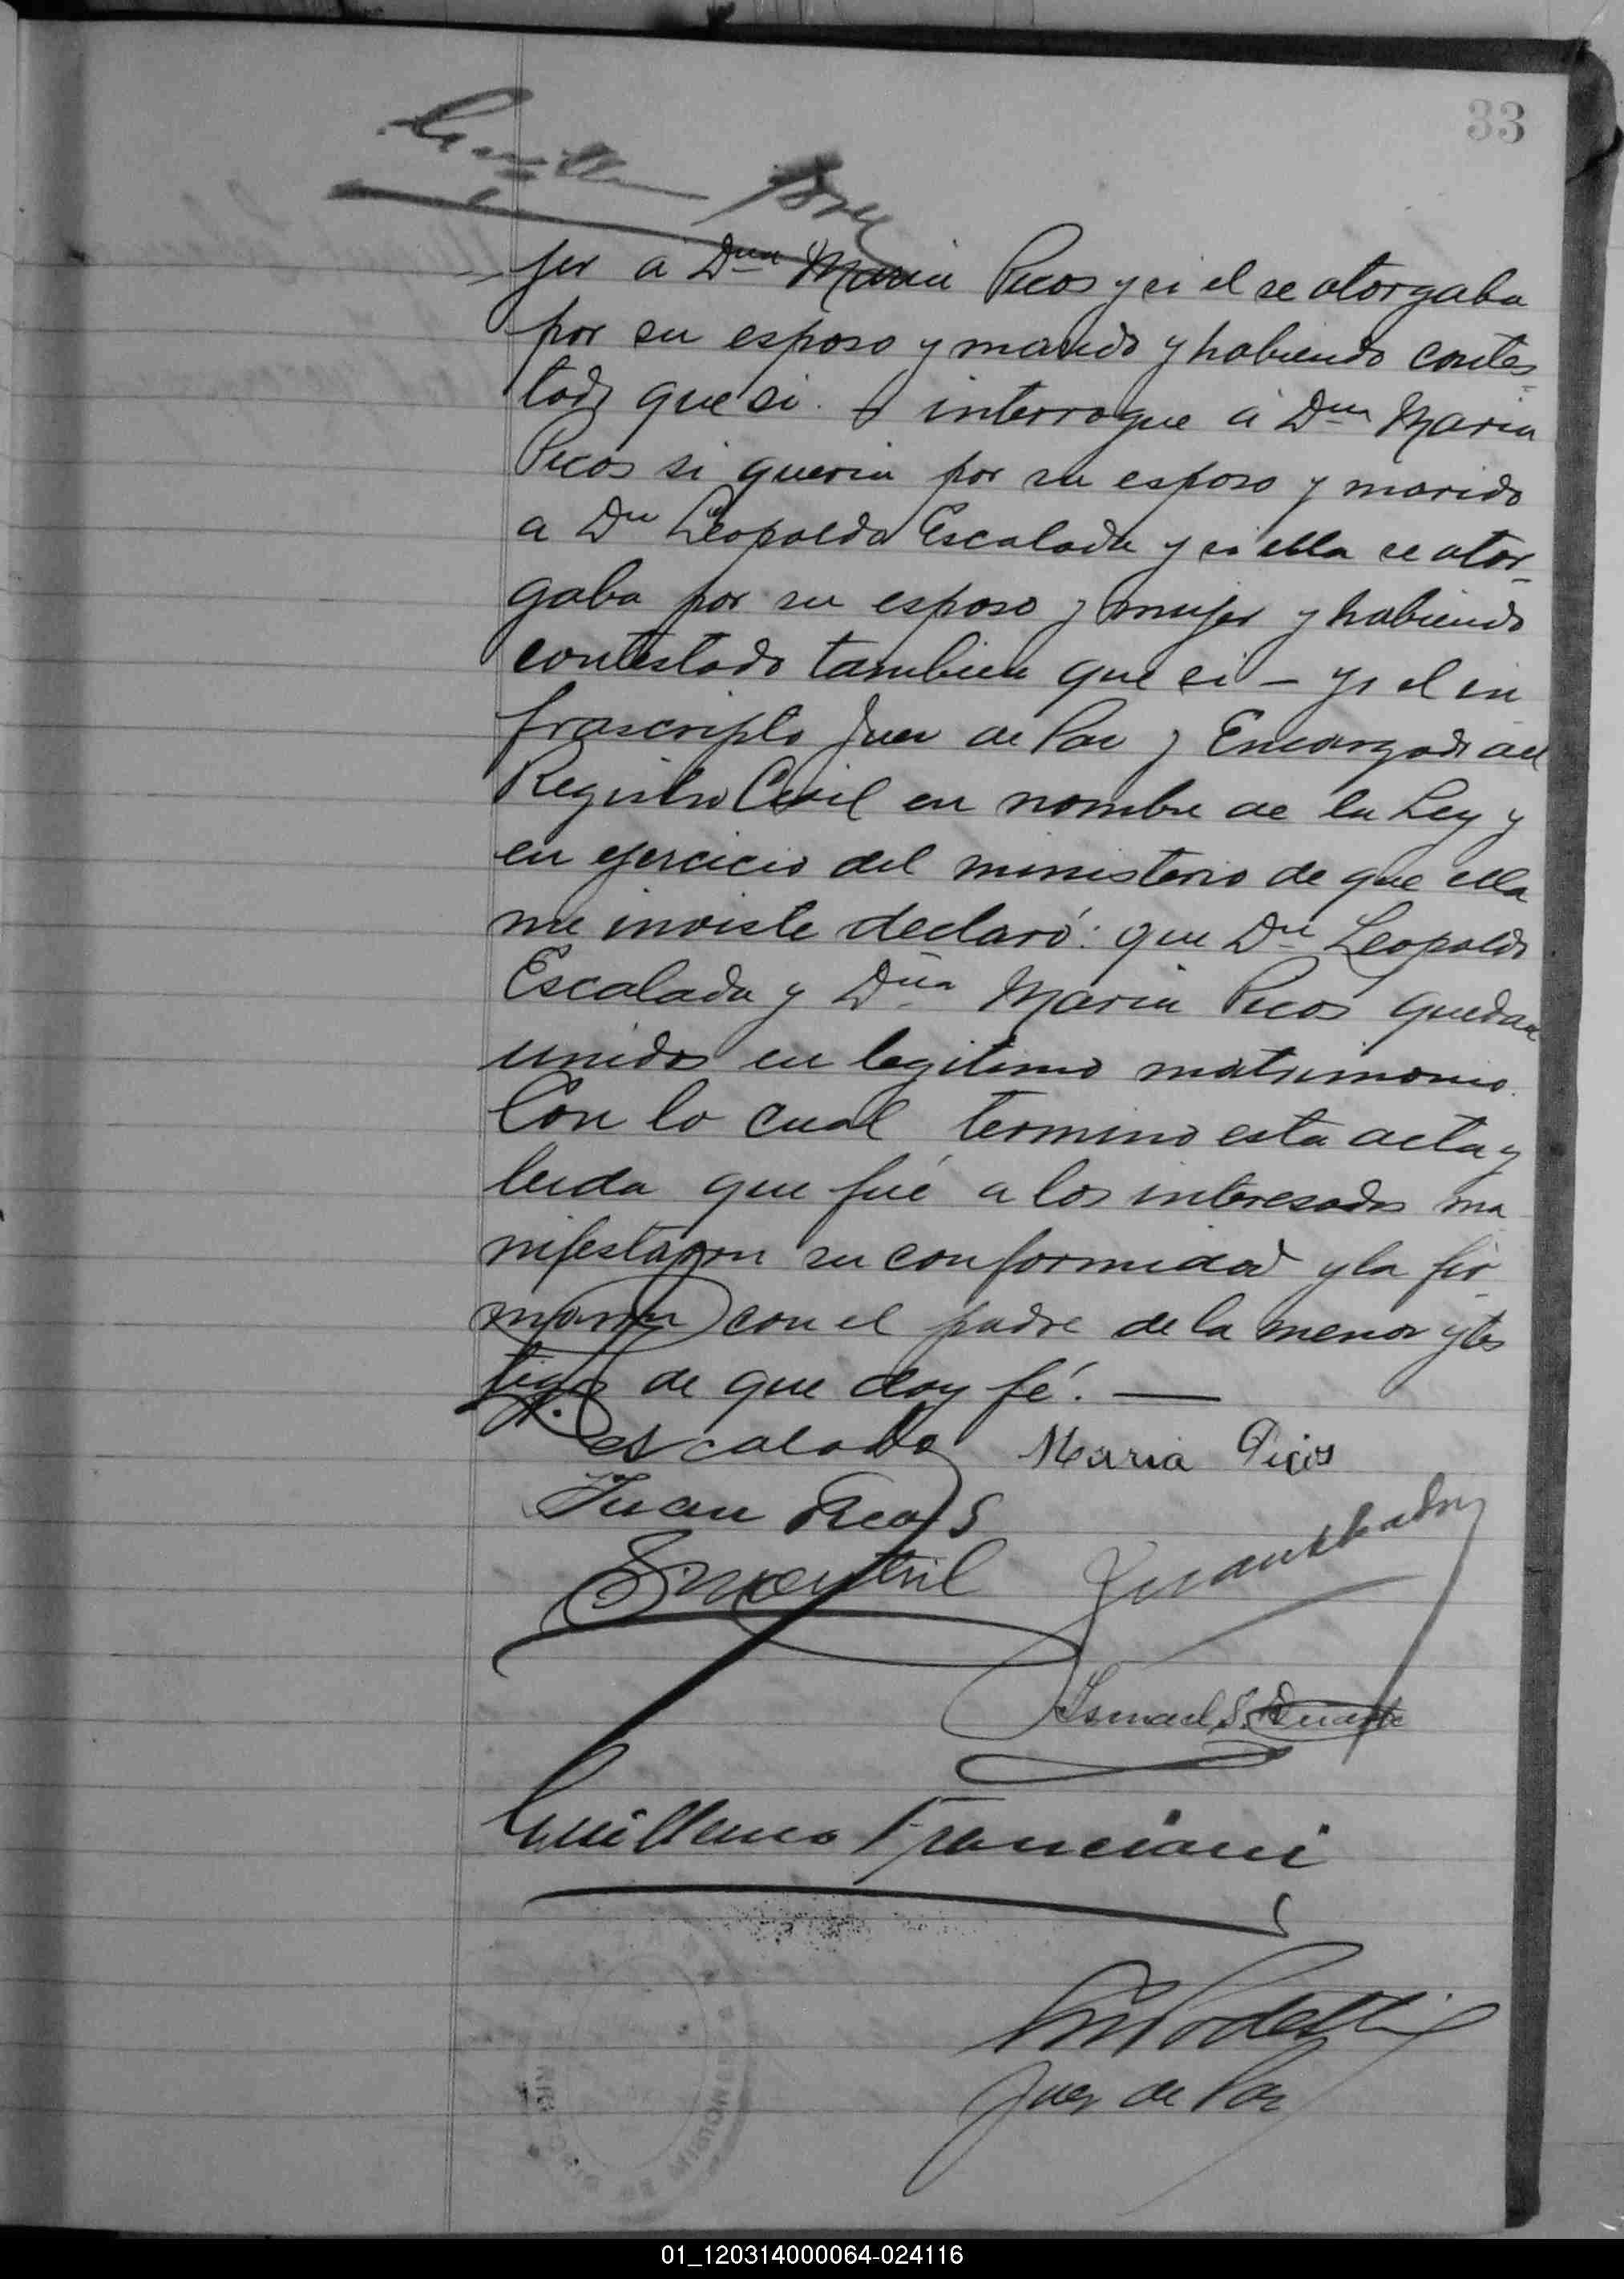 33
jer a Dña Maria Picos y si el se otorgaba
por su esposo y marido y habiendo contes-
tado que si. interrogue á Dña Maria
Picos si queria por su esposo y marido
a Dn Leopoldo Escalada y si ella se otor-
gaba por su esposo y mujer y habiendo
contestado tambien que si — yo el in
frascripto Juez de Paz y Encargado del
Registro Civil en nombre de la Ley y
en ejercicio del ministerio de que ella
me inviste declaró: que Dn Leopoldo
Escalada y Dña Maria Picos quedan
unidos en legitimo matrimonio.
Con lo cual termino esta acta y
leida que fué a los interesados ma
nifestaron su conformidad y la fir-
maron con el padre de la menor y tes
tigos de que doy fé. —
Escalada Maria Picos
Juan Picos
Ismael S. Duarte
Guillermo Franciani
Juez de Paz
MISIONES
01_120314000064-024116